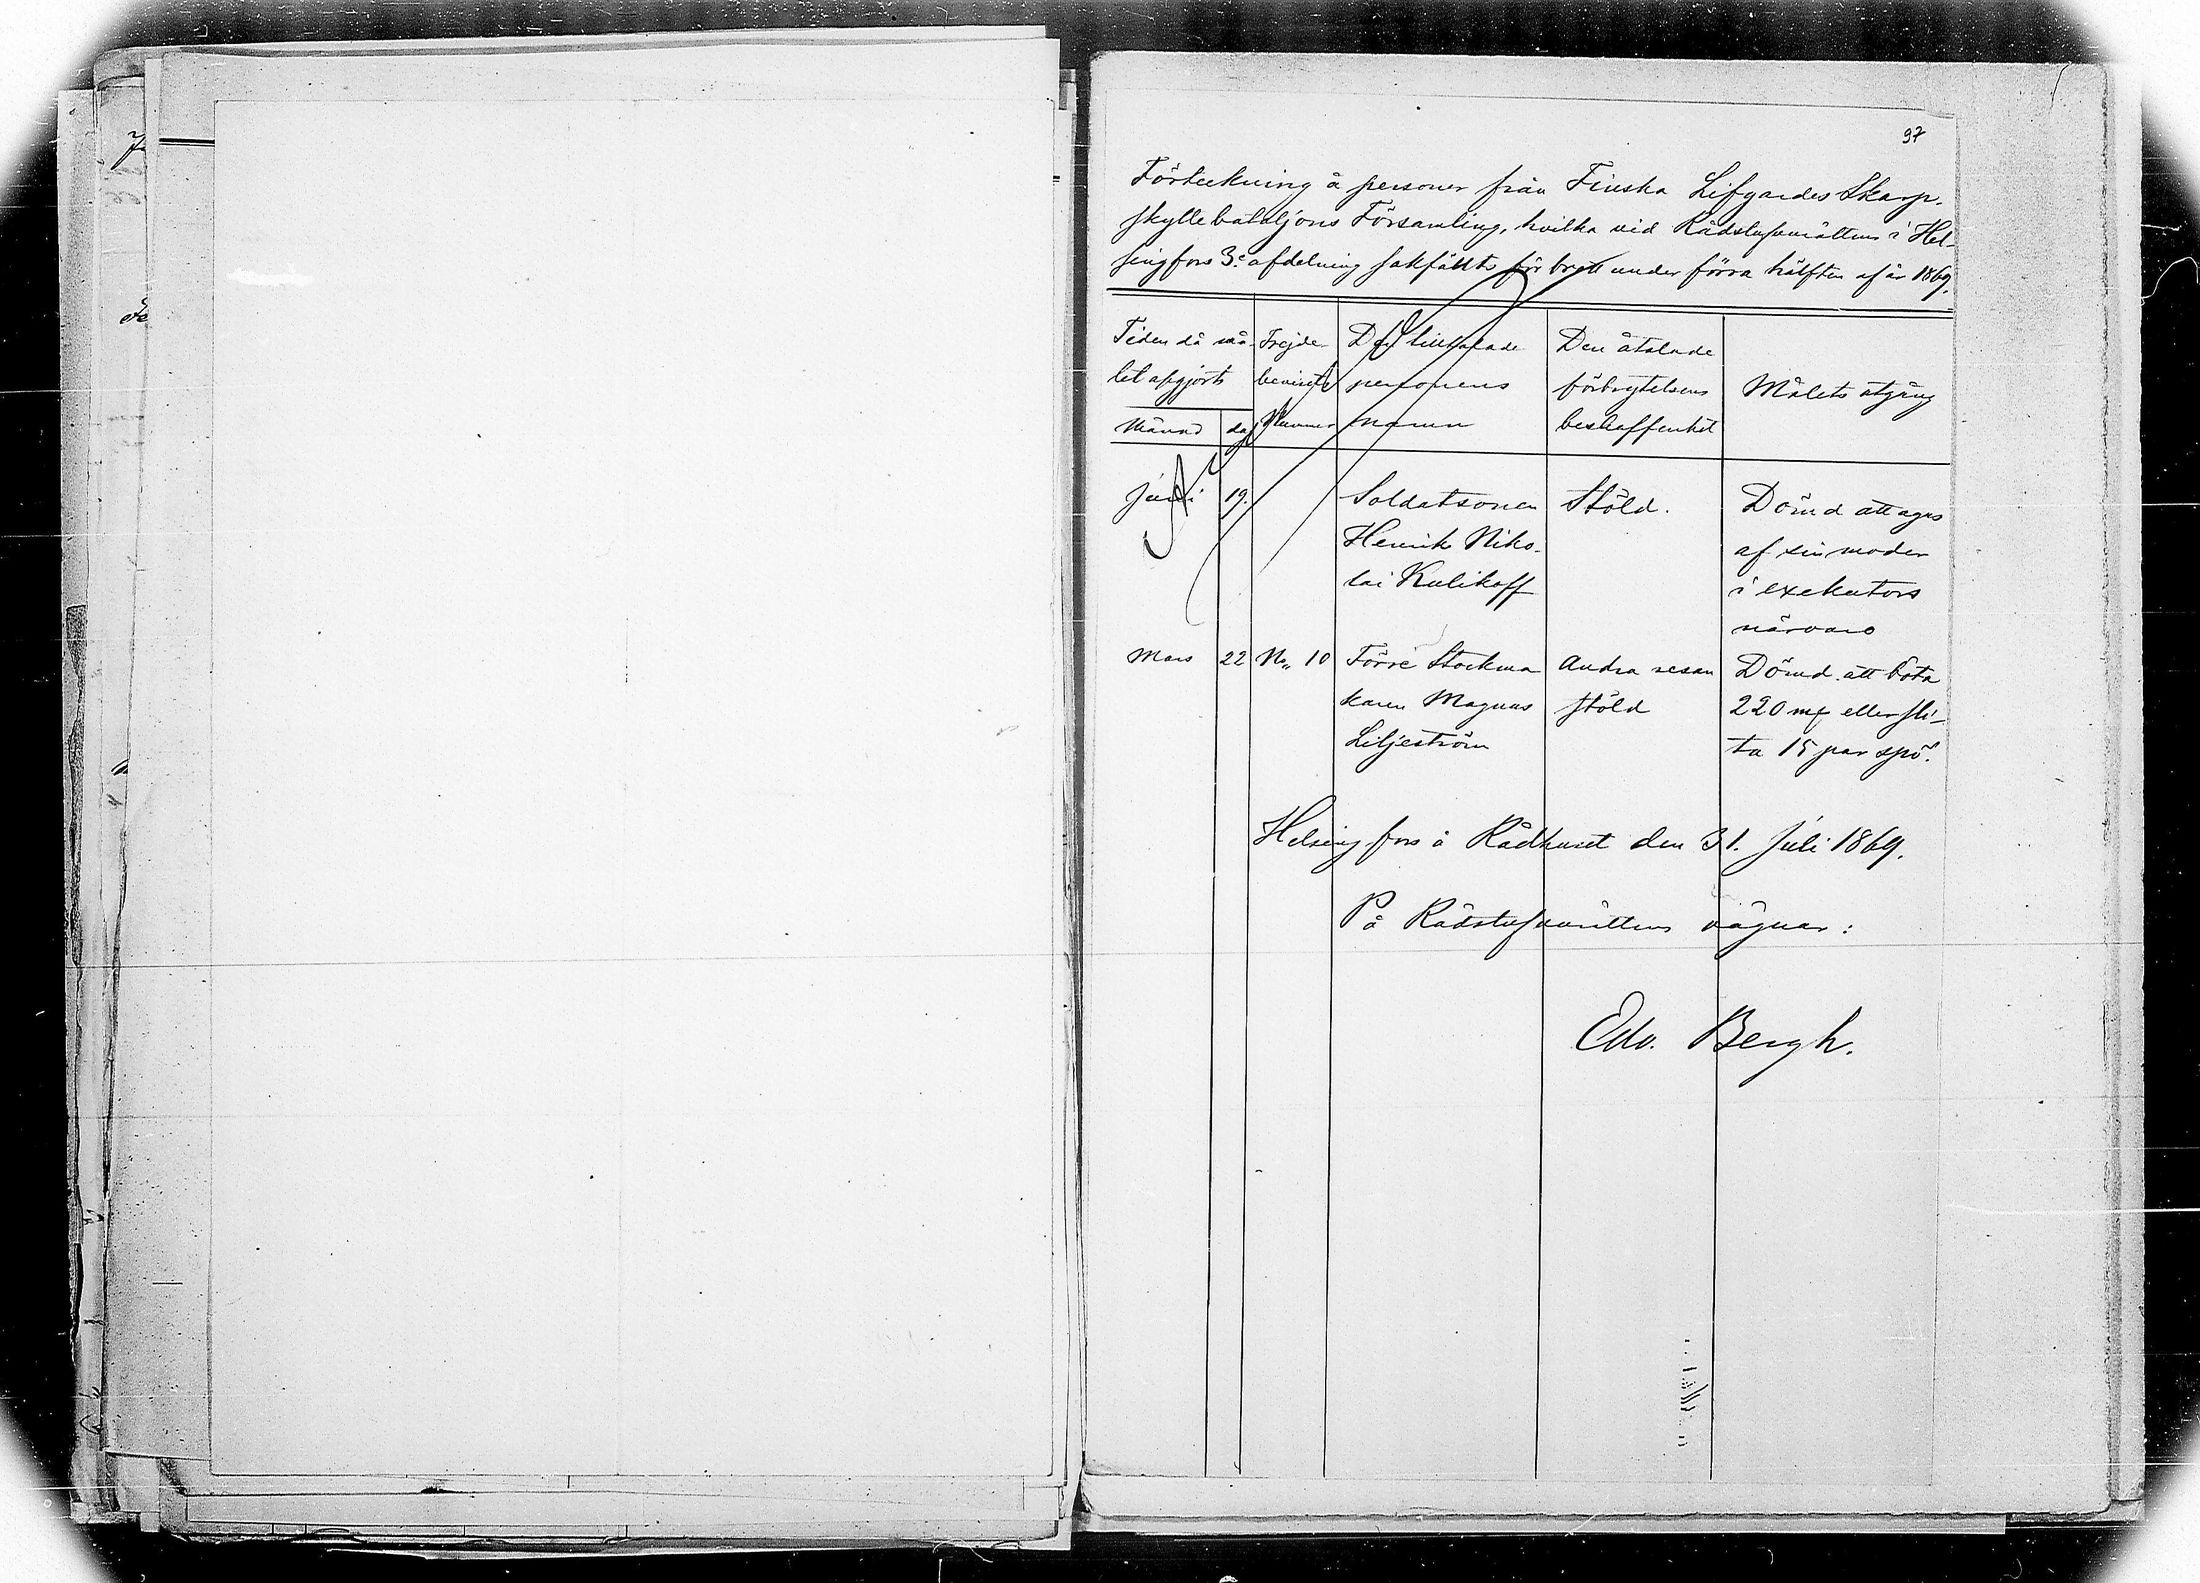 97
Förteckning å personer från Finska Lifgardes Skarp-
skyttebataljons Församling, hvilka vid Rådstufvurätten i Hel-
singfors 3e afdelning sakfällts för brott under förra hälften af år 1869.
Tiden då må-
let afgjorts
Månad
dag
Frejde-
bevisets
Nummer
Den tilltalade
personens
namn
Den åtalade
förbrytelsens
beskaffenhet
Målets utgång
Juni 19. Soldatsonen Stöld. Dömd att agas
Henrik Niko- af sin moder
lai Kulikoff i exekutors
närvaro
Mars 22 No 10 Förre Stockma Andra resan Dömd att böta
karen Magnus stöld 220 mk eller sli-
Liljeström ta 15 par spö.
Helsingfors å Rådhuset den 31. Juli 1869.
På Rådstufvurättens vägnar:
Edv. Bergh.